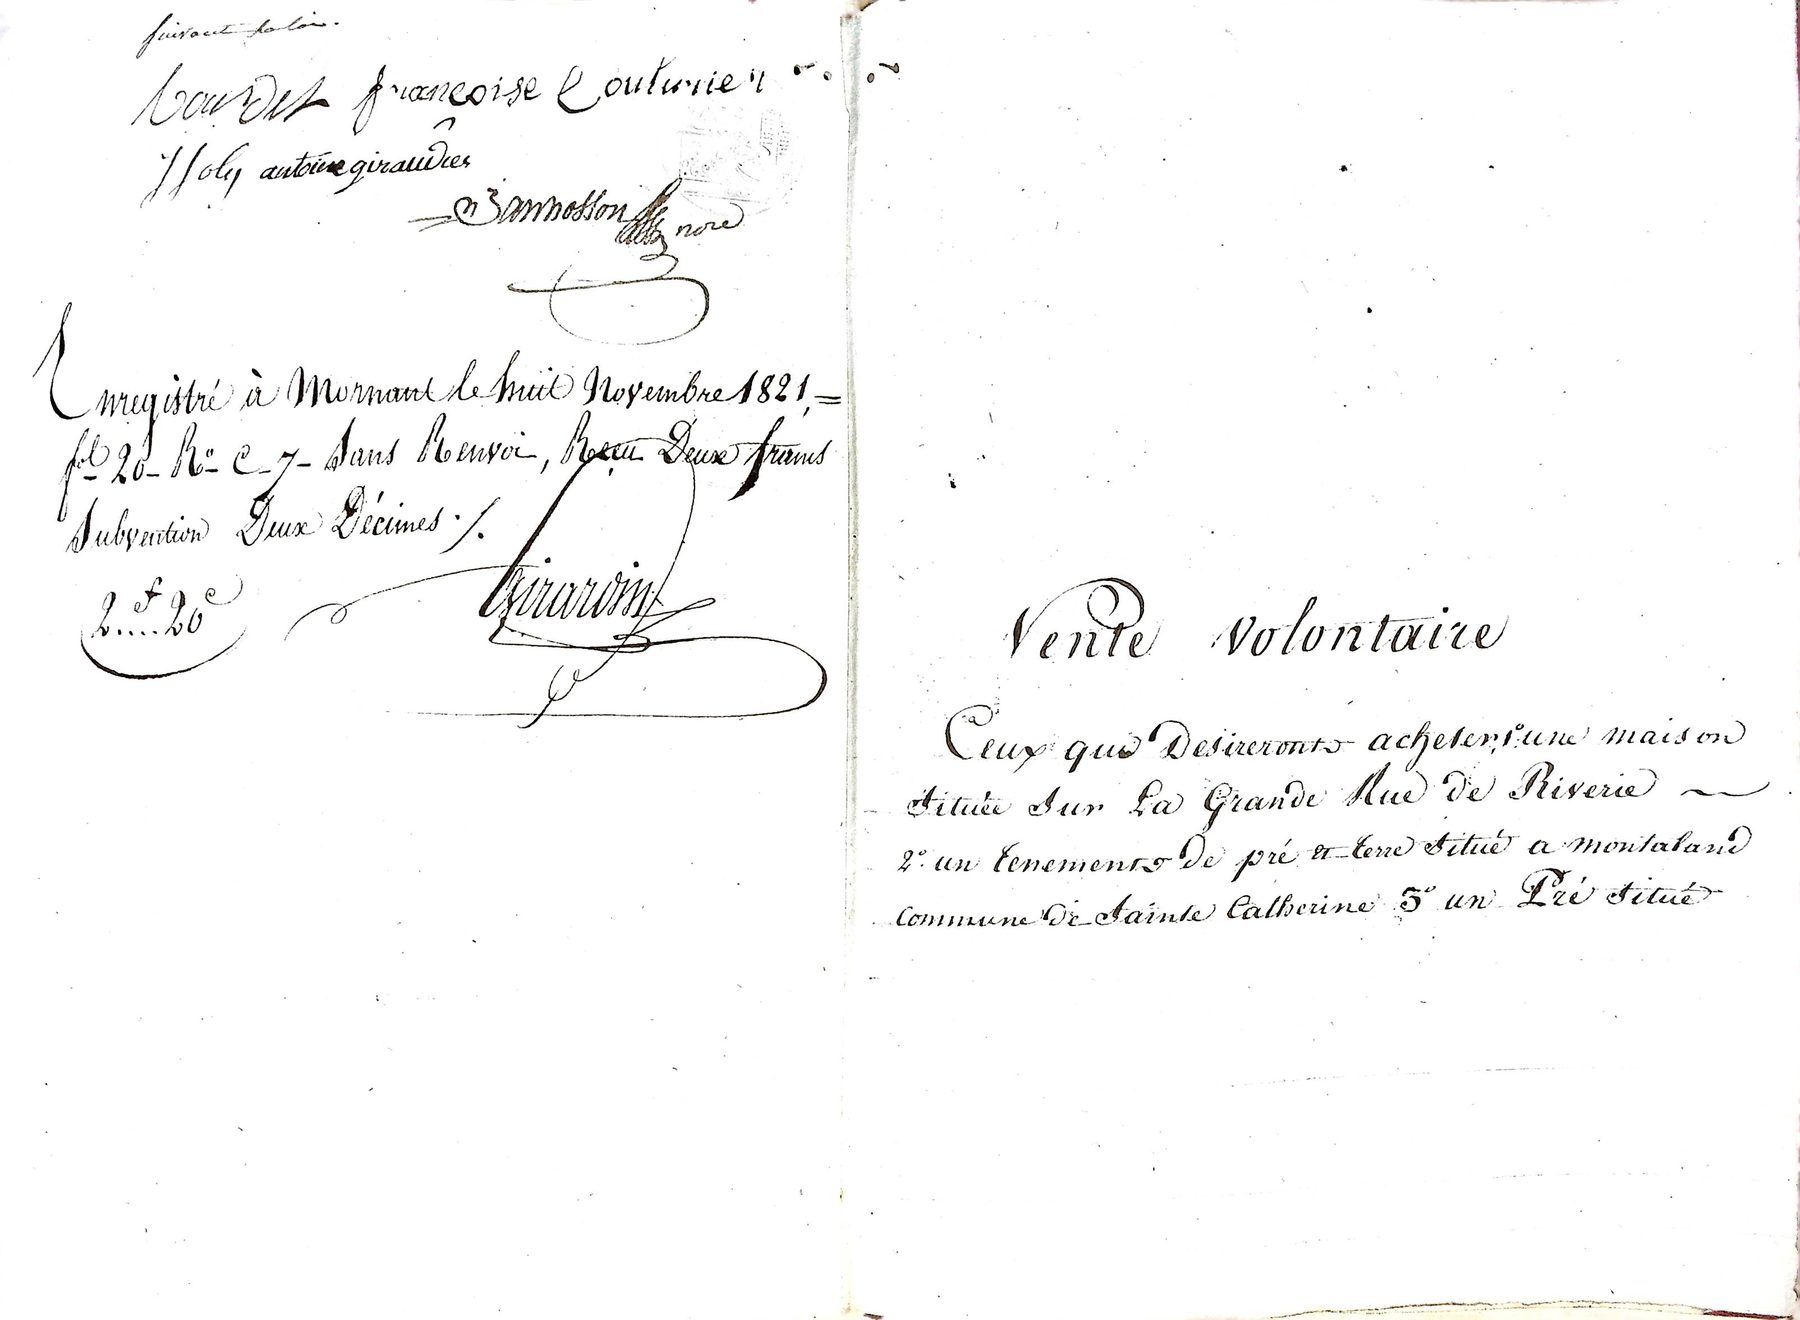 suivant la loi.
Bourdet françoise Couturier
JJoly antoine giraudier
Bannosson
nore
Enregistré à Mornant le huit Novembre 1821, =
fol 20 - Ro - C - 7 - Sans Renvoi, Reçu Deux francs
Subvention Deux Décimes ./.
2f....20c
Girardin
Vente Volontaire
Ceux que Desireronts acheter, 1o. une maison
Située Sur La Grande Rue de Riverie
2o. un tenements de pré et terre Situé a montaland
commune de Sainte Catherine 3o un Pré Situé